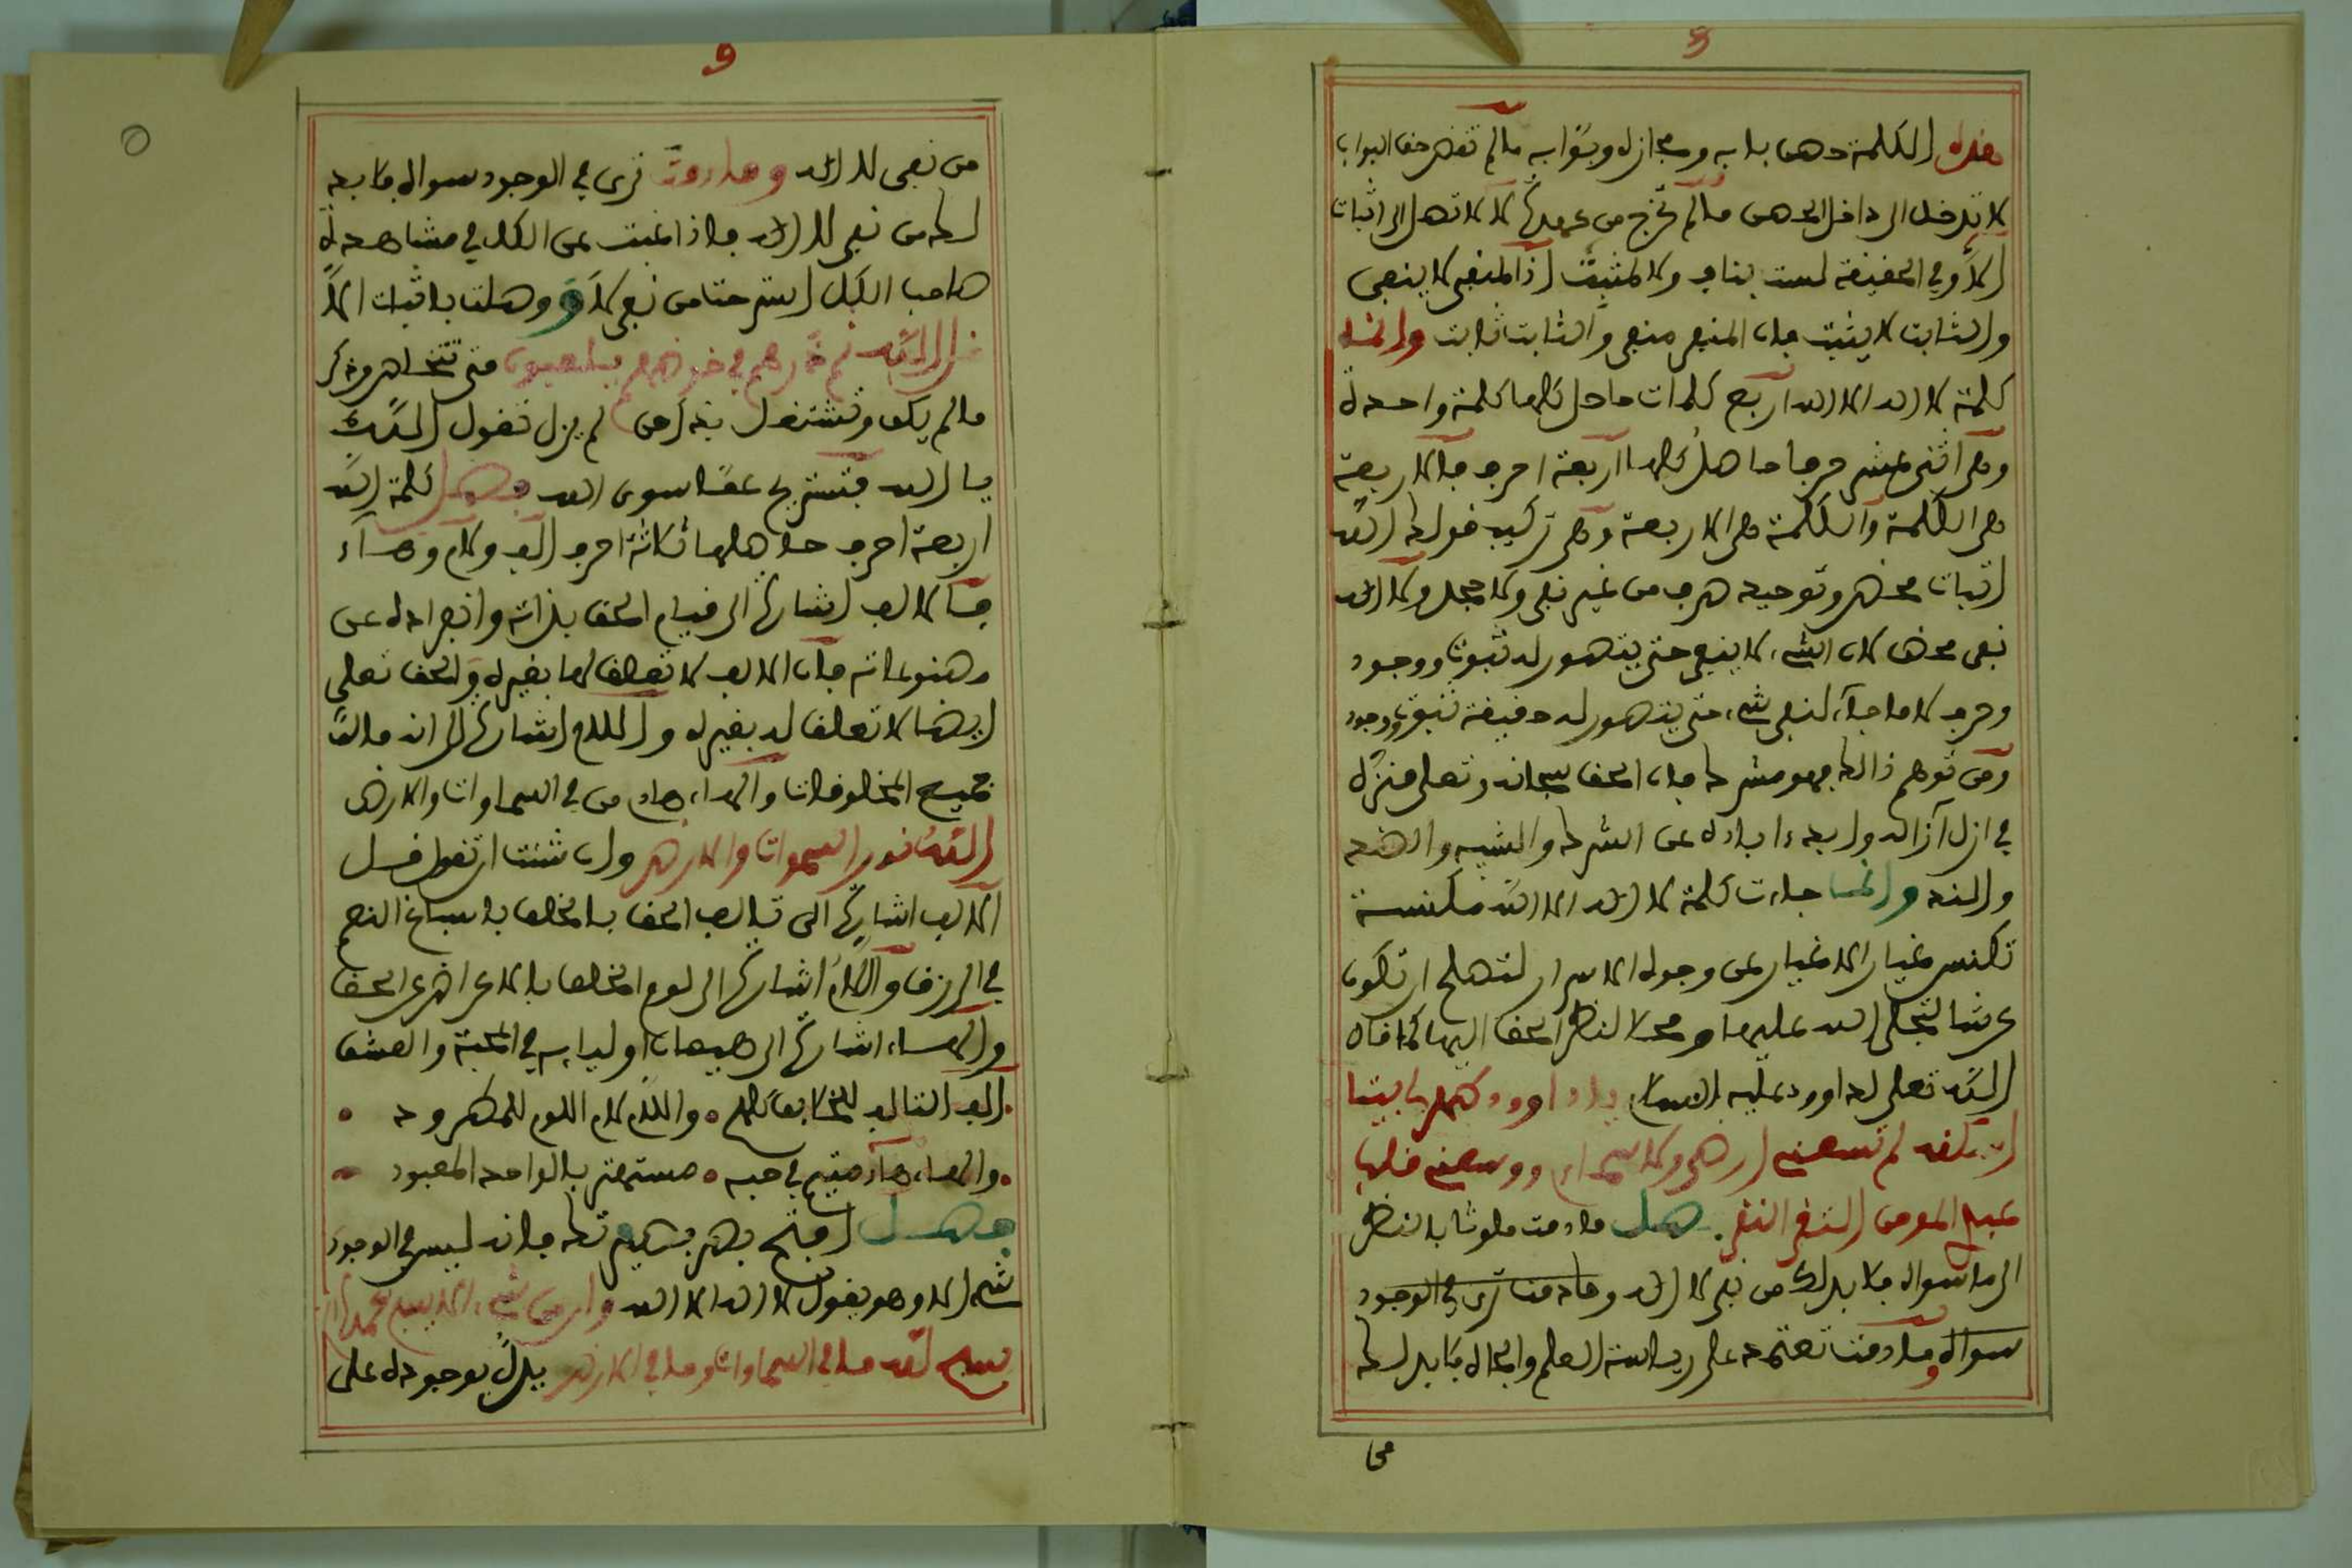 هذه الكلمة حصن بابه ومجازه وبوابه مالم تقض حق البواب
لا تدخل الى داخل الحصن مالم تخرج من عهدة لا لا تصل الى اثبات
الا وفي الحقيقة لست بناف ولا مثبت اذ المنفي لا ينفى
والثابت لا يثبت فان المنفي منفي والثابت ثابت وانما
كلمة لا اله الا الله اربع كلمات حاصل كلها كلمة واحدة
وهي اثنى عشر حرفا حاصل كلها اربعة احرف فالاربعة
هي الكلمة والكلمة هي الاربعة وهي تركيب قولك الله
اثبات محض وتوحيد صرف من غير نفي ولا جحد ولا اله
نفي محض لان الشيء لا ينفي حتى يتصور له ثبوتا ووجود
وحرف لا ما جاء لنفي شيء حتى يتصور له حقيقة ثبوت ووجود
ومن توهم ذالك فهو مشرك فان الحق سبحانه وتعلى منزه
في ازل آزاله وابد ءاباده عن الشرك والشبيه والضد
والند وانما جاءت كلمة لا اله الا الله مكنسة
تكنس غبار الاغيار عن وجوه الاسرار لتصلح ان تكون
عرشا لتجلى الله عليها ومحلا لنظر الحق اليها كما قال
الله تعلى لداوود عليه السلام يا داوود طهر لي بيتا
اسكنه لم تسعني ارضي ولا سماءي ووسعني قلب
عبدي المومن التقي النقي فصل مادمت ملوثا بالنظر
الى ما سواه فلا بد لك من نفي لا اله وما دمت ترى في الوجود
سواه وما دمت تعتمد على رياسة العلم والجاه فلا بد لك
من
9
من نفي لا اله وما دمت ترى في الوجود سواه فلا بد
لك من نفي لا اله فاذا غبت عن الكل في مشاهدة
صاحب الكل استرحت من نفي لا ووصلت باثبات الا
قل الله ثم ذرهم في خوضهم يلعبون متى تتخلص من ذكر
مالم يكن وتشتغل بذكر من لم يزل تقول الله
يا الله فتستريح عما سوى الله فصل كلمة الله
اربعة احرف حاصلها ثلاثة احرف الف ولام وهاء
فالالف اشارة الى قيام الحق بذاته وانفراده عن
مصنوعاته فان الالف لا تعلق لها بغيره والحق تعلى
ايضا لا تعلق له بغيره واللام اشارة الى انه مالك
جميع المخلوقات والهاء هاد من في السماوات والارض
الله نور السموات والارض وان شئت ان تقول قل
الالف اشارة الى تاليف الحق بالخلق باسباغ النعم
في الرزق واللام اشارة الى لوم الخلق بالاعراض عن الحق
والهاء اشارة الى هيمان اوليايه في المحبة والعشق
الف التاليف للخلايق كلهم • واللام لام اللوم للمطرود •
• والهاء هاء متيم في حبه • مستهتر بالواحد المعبود
فصل افتح بصر بصيرتك فانه ليس في الوجود
شيء الا وهو يقول لا اله الا الله وان من شيء الا يسبح بحمده
يسبح لله ما في السماوات وما في الارض يدل بوجوده على